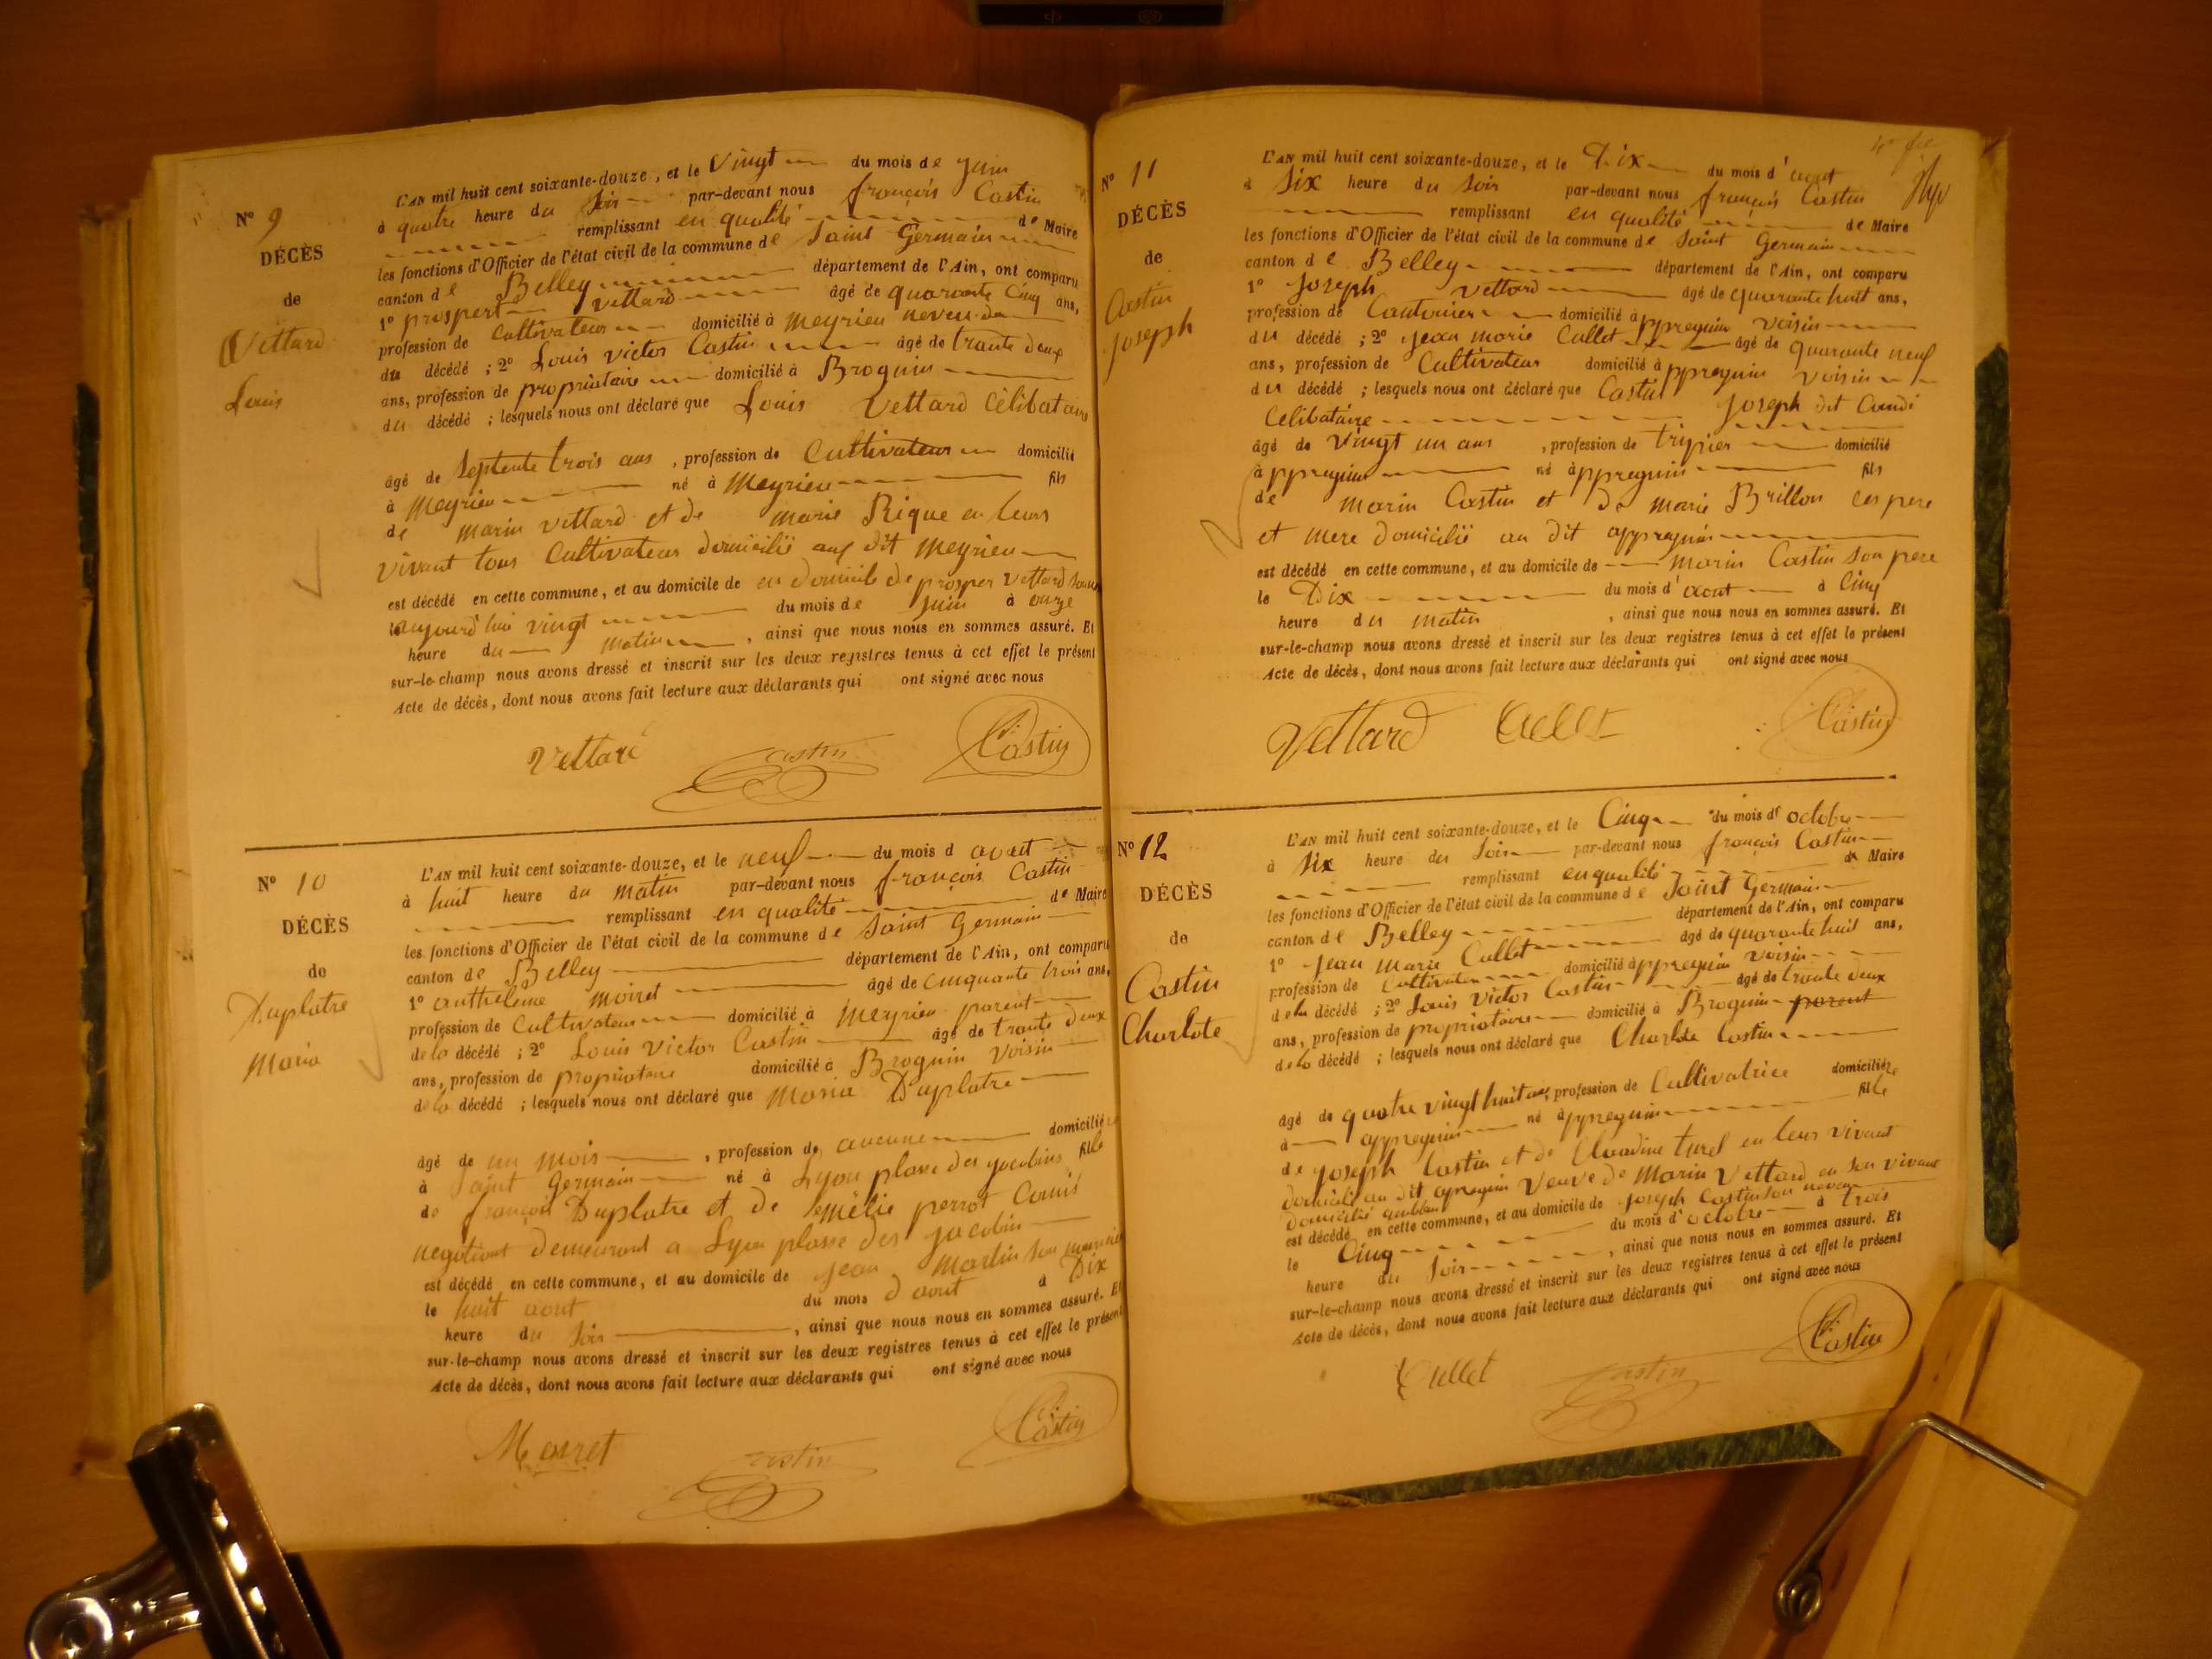 N° 9
DÉCÈS
de
Vettard
Louis
L'AN mil huit cent soixante-douze, et le Vingt du mois de juin
à quatre heure du soir par-devant nous françois Castin
remplissant en qualité de Maire
les fonctions d'Officier de l'état civil de la commune de Saint Germain
canton de Belley département de l'Ain, ont comparu
1° prospert Vettard âgé de quarante Cinq ans,
profession de Cultivateur domicilié à Meyrieu neveu du
du décédé ; 2° Louis Victor Castin âgé de trante deux
ans, profession de propriataire domicilié à Brognin
du décédé ; lesquels nous ont déclaré que Louis Vettard Célibataire
âgé de Septente trois ans, profession de Cultivateur domicilié
à Meyrieu né à Meyrieu fils
de Marin Vettard et de Marie Rique en leurs
vivant tous Cultivateur domicilié audit Meyrieu
est décédé en cette commune, et au domicile de en domicile de prosper Vettard
le aujourd'hui vingt du mois de juin à onze
heure du matin, ainsi que nous nous en sommes assuré. Et
sur-le-champ nous avons dressé et inscrit sur les deux registres tenus à cet effet le présent
Acte de décès, dont nous avons fait lecture aux déclarants qui ont signé avec nous
Vettard Castin Castin
N° 10
DÉCÈS
de
Duplatre
Maria
L'AN mil huit cent soixante-douze, et le neuf du mois d aout
à huit heure du matin par-devant nous françois Castin
remplissant en qualité de Maire
les fonctions d'Officier de l'état civil de la commune de Saint Germain
canton de Belley département de l'Ain, ont comparu
1° anthelême Moiret âgé de Cinquante trois ans,
profession de Cultivateur domicilié à Meyrieu parent
de la décédé ; 2° Louis Victor Castin âgé de trante deux
ans, profession de propriataire domicilié à Brognin Voisin
de la décédé ; lesquels nous ont déclaré que Maria Duplatre
âgé de un mois, profession de aucune domicilié
à Saint Germain né à Lyon plasse des jacobins fille
de françois Duplatre et de perrot
negotiant demeurant a Lyon plasse des jacobin
est décédé en cette commune, et au domicile de jean Martin son
le huit aout du mois d aout à Dix
heure du soir, ainsi que nous nous en sommes assuré. Et
sur-le-champ nous avons dressé et inscrit sur les deux registres tenus à cet effet le présent
Acte de décès, dont nous avons fait lecture aux déclarants qui ont signé avec nous
Castin Castin
N° 11
DÉCÈS
de
Castin
joseph
L'AN mil huit cent soixante-douze, et le Dix du mois d'aout
à Six heure du soir par-devant nous françois Castin
remplissant en qualité de Maire
les fonctions d'Officier de l'état civil de la commune de Saint Germain
canton de Belley département de l'Ain, ont comparu
1° Joseph Vettard âgé de quarante huit ans,
profession de Cantonier domicilié à ppregnin voisin
du décédé ; 2° jean marie Cullet âgé de quarante neuf
ans, profession de Cultivateur domicilié à ppregnin voisin
du décédé ; lesquels nous ont déclaré que Castin joseph dit
Célibataire
âgé de vingt un ans, profession de tripier domicilié
à ppregnin né à ppregnin fils
de marin Castin et de marie Brillon ces pere
et mere domicilié au dit appregnin
est décédé en cette commune, et au domicile de marin Castin son pere
le Dix du mois d'aout à Cinq
heure du matin, ainsi que nous nous en sommes assuré. Et
sur-le-champ nous avons dressé et inscrit sur les deux registres tenus à cet effet le présent
Acte de décès, dont nous avons fait lecture aux déclarants qui ont signé avec nous
Vettard Castin
N° 12
DÉCÈS
de
Castin
Charlote
L'AN mil huit cent soixante-douze, et le Cinq du mois de octobre
à Six heure du soir par-devant nous françois Castin
remplissant en qualité de Maire
les fonctions d'Officier de l'état civil de la commune de Saint Germain
canton de Belley département de l'Ain, ont comparu
1° jean Marie Cullet âgé de quarante huit ans,
profession de Cultivateur domicilié à ppregnin voisin
de la décédé ; 2° Louis Victor Castin âgé de trante deux
ans, profession de propriotaire domicilié à Brognin parent
de la décédé ; lesquels nous ont déclaré que Charlote Castin
âgé de quatre vingt huit ans, profession de Cultivatrice domicilié
à appregnin né à ppregnin fille
de joseph Castin et de Claudine turel en leur vivant
domicilié au dit apregnin Veuve de Marin Vettard en son vivant
domicilié
est décédé en cette commune, et au domicile de joseph Castin son neveu
le Cinq du mois d'octobre à trois
heure du soir, ainsi que nous nous en sommes assuré. Et
sur-le-champ nous avons dressé et inscrit sur les deux registres tenus à cet effet le présent
Acte de décès, dont nous avons fait lecture aux déclarants qui ont signé avec nous
Cullet Castin Castin